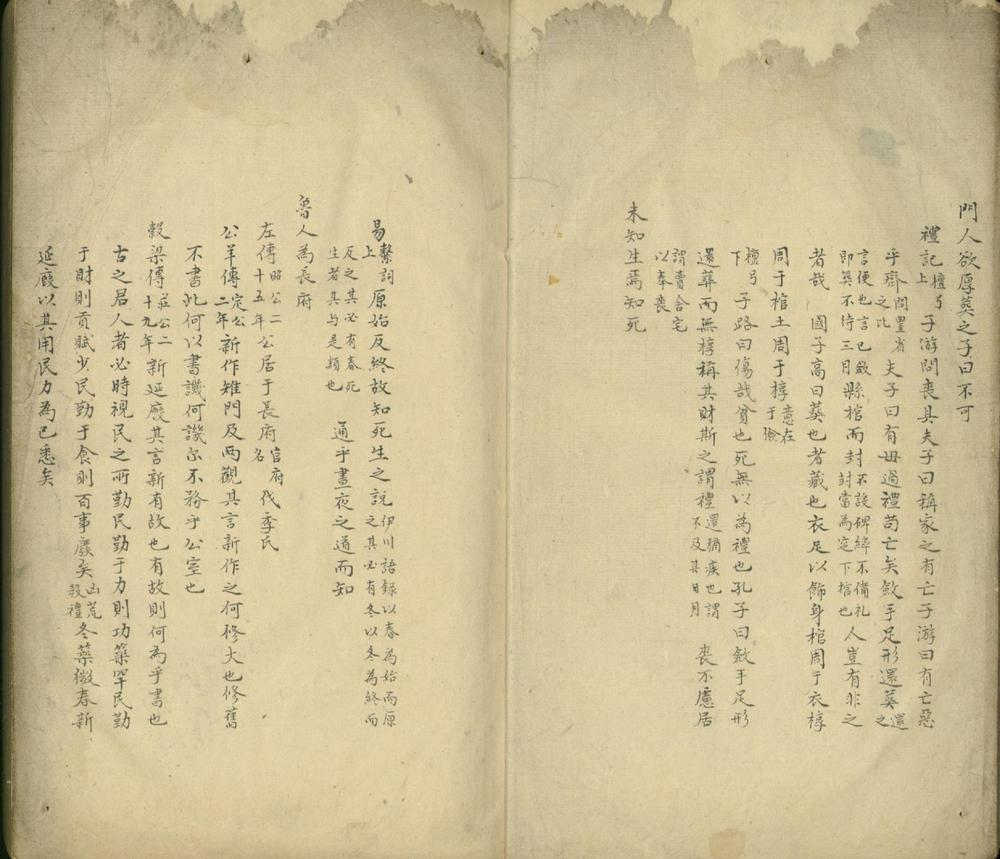 門人欲厚葬之子曰不可
禮記檀弓上子游問喪具夫子曰稱家之有亡子游曰有亡惡
乎齊問豐省之比夫子曰有毋過禮苟亡矣斂手足形還葬還之
言便也言已斂即葬不待三月縣棺而封不設碑繂不備礼封當為窆下棺也人豈有非之
者哉 國子高曰葬也者藏也衣足以飾身棺周于衣椁
周于棺土周于椁意在于儉
檀弓下子路曰傷哉貧也死無以為禮也孔子曰斂手足形
還葬而無椁稱其財斯之謂禮還猶疾也謂不及其日月 喪不慮居
謂賣舍宅以奉喪
未知生焉知死
易繫詞上原始反終故知死生之説伊川語録以春為始而原之其必有冬以冬為終而
反之其必有春死生者其与是類也 通乎晝夜之道而知
魯人為長府
左傳昭公二十五年公居于長府官府名伐季氏
公羊傳定公二年新作雉門及两觀其言新作之何修大也修舊
不書此何以書譏何譏尓不務乎公室也
穀梁傳莊公二十九年新延廄其言新有故也有故則何為乎書也
古之君人者必時視民之所勤民勤于力則功築罕民勤
于財則貢賦少民勤于食則百事廢矣凶荒殺禮冬築微春新
延廄以其用民力為已悉矣